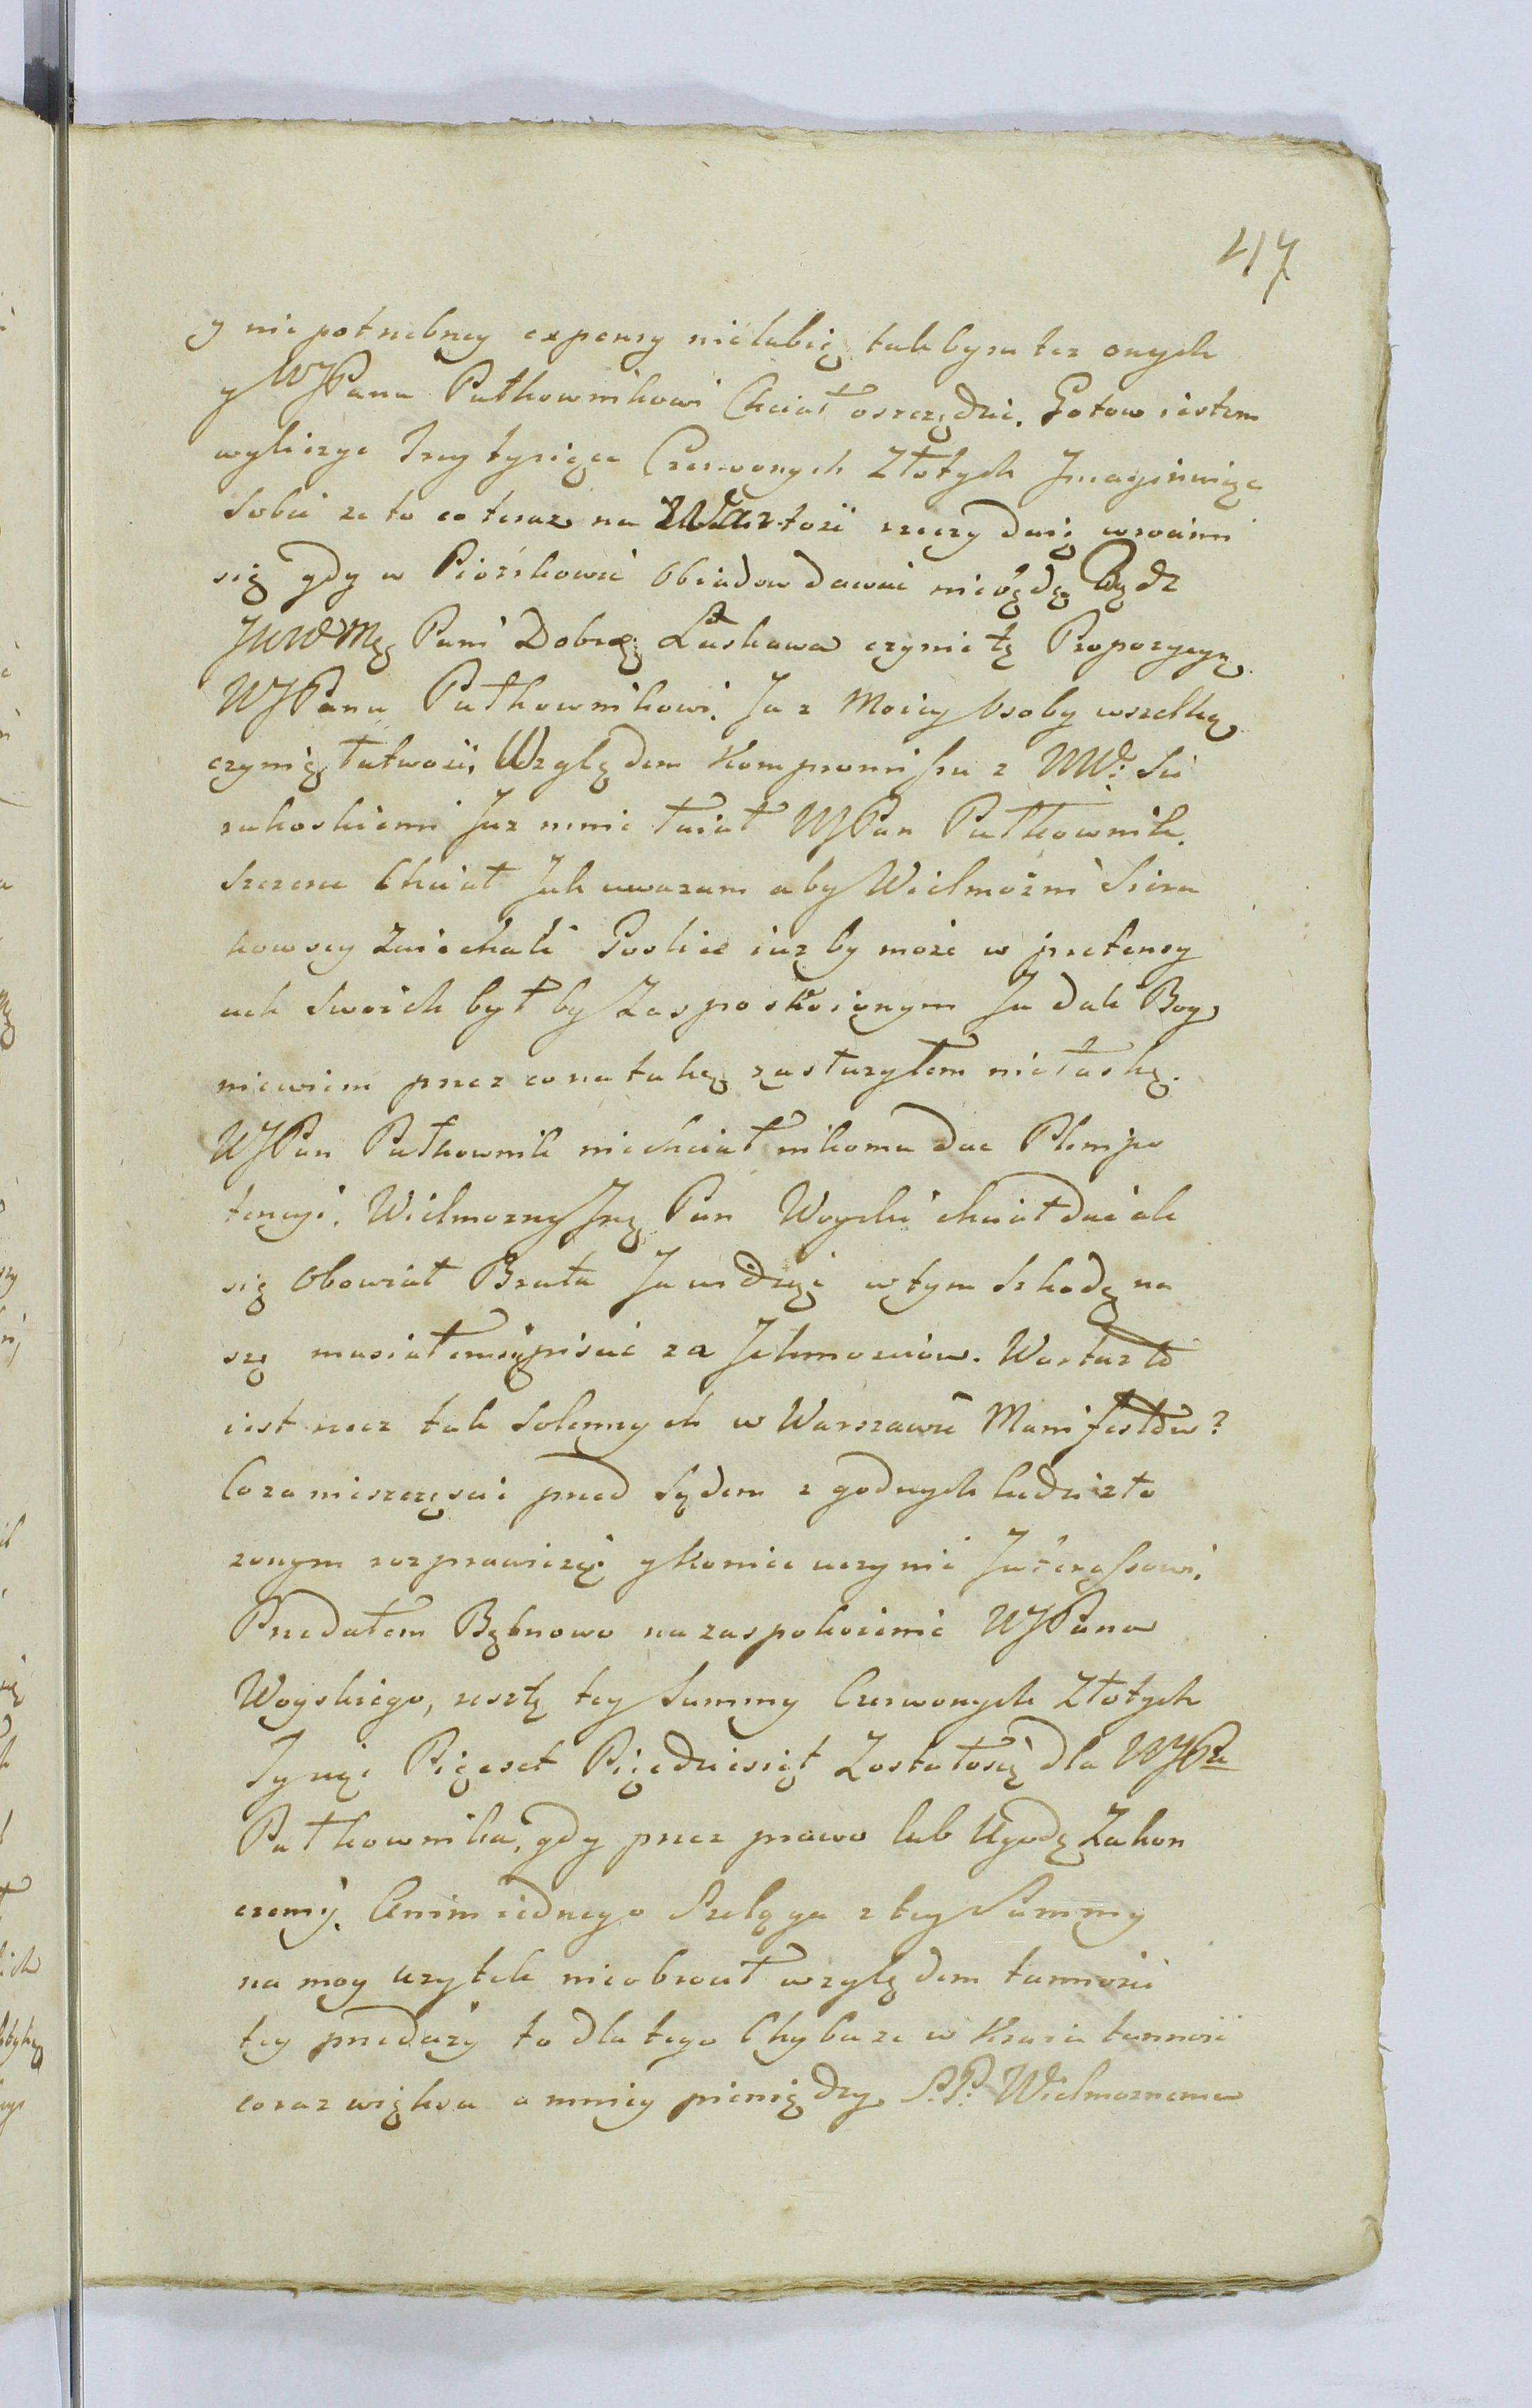 417
y niepotrzebney expensy nielubię takbym tez onych
y WJPanu Pułkownikowi Chciał oszczędzic. Gotow iestem
wyliczyc Trzy tysiące Czerwonych Złotych Jmaginuiąc
Sobie ze to co teraz na Wartosc rzeczy daię wroci mi
się gdy w Piotrkowie Obiadow dawac niebędę Bądz
JWWMę Pani Dobrą Łaskawa czynic tę Propozycyą
WJPanu Pułkownikowi. Ja z Moiey Osoby wszelką
czynię łatwosc, Względem Kompromissu z WWi. Sie
rakoskiemi Juz mnie łaiał WJPan Pułkownik.
Szczerze Chciał Jak uwazam aby Wielmożni Siera
kowscy Zaiechali Goslice iuz by może w pretensy
ach Swoich był by Zaspokoionym Ja dali Bog
niewiem przez co na taką zasłuzyłem niełaskę.
WJPan Pułkownik niechciał nikomu dac Plenipo
tencyi. Wielmozny Jmę Pan Woyski chciał dac ale
się Obawiał Brata Ja widząc w tym Szkodę na
szą musiałem się pisac za Jchmosciow. Warta z to
iest rzecz tak Solennych w Warszawie Manifestow?
Coza nieszczęscie przed Sądem z godnych ludzi zło
zonym rozprawic się y Koniec uczynic Jnteressowi.
Przedałem Bębnowo na zaspokoienie WJPana
Woyskiego, resztę tey Summy Czerwonych Złotych
Tysiąc Pięcset Pięcdziesiąt Zostało się dla WJPa
Pułkownika, gdy przez prawo lub Ugodę Zakon
czemy. Anim iednego Szeląga z tey Summy
na moy uzytek nieobrocił względem tannosci
tey przedazy to dla tego Chyba ze w Kraiu tannosc
coraz większa a mniey pieniędzy. S.P. Wielmoznemu